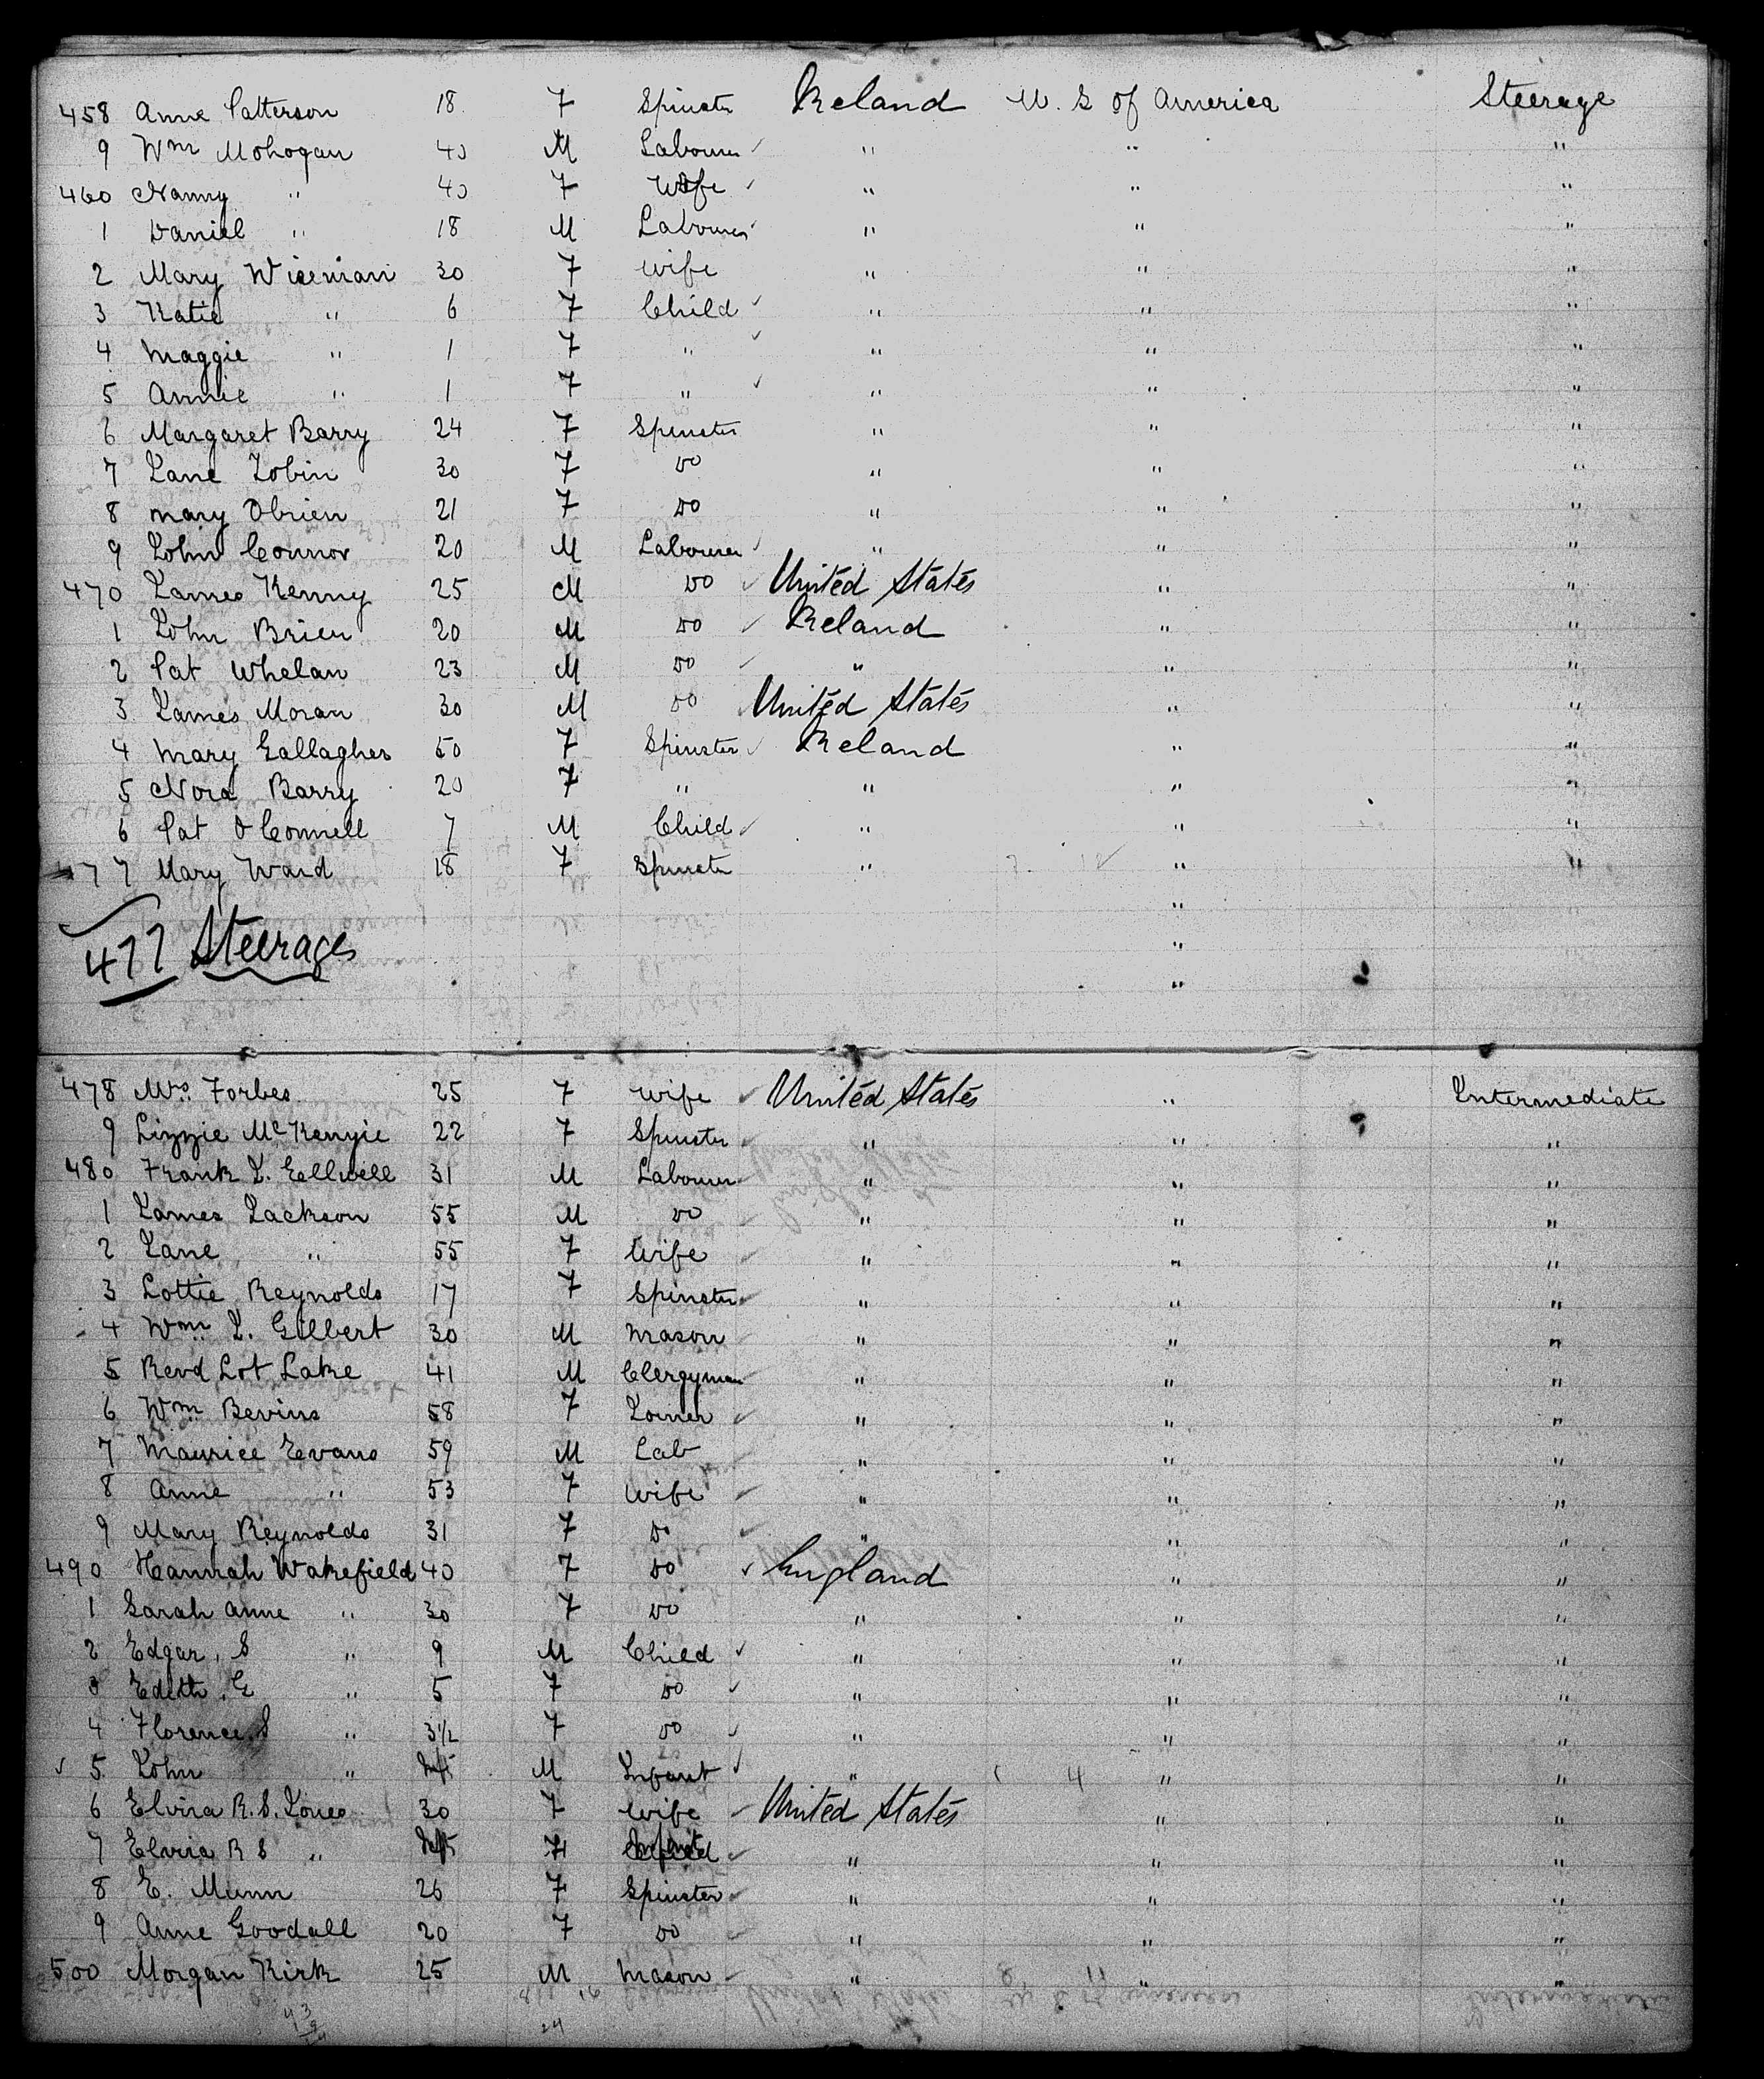 458 Anne Patterson 18 F Spinster Ireland U. S of America Steerage
9 Wm Mohogan 40 M Labourer " " "
460 Nanny " 40 F Wife " " "
1 Daniel " 18 M Labourer " " "
2 Mary Wiseman 30 F Wife " " "
3 Katie " 6 F Child " " "
4 Maggie " 1 F " " " "
5 Annie " 1 F " " " "
6 Margaret Barry 24 F Spinster " " "
7 Jane Tobin 30 F Do " " "
8 Mary Obrien 21 F Do " " "
9 John Connor 20 M Labourer " " "
470 James Kenny 25 M Do United States " "
1 John Brien 20 M Do Ireland " "
2 Pat Whelan 23 M Do " " "
3 James Moran 30 M Do United States " "
4 Mary Gallagher 50 F Spinster Ireland " "
5 Nora Barry 20 F " " " "
6 Pat O Connell 7 M Child " " "
477 Mary Ward 18 F Spinster " " "
"
477 Steerages "
"
478 Mrs. Forbes 25 F Wife United States " Intermediate
9 Lizzie McKenzie 22 F Spinster " " "
480 Frank J. Ellwell 31 M Labourer " " "
1 James Jackson 55 M Do " " "
2 Jane " 55 F Wife " " "
3 Lottie Reynolds 17 F Spinster " " "
4 Wm. J. Gilbert 30 M Mason " " "
5 Revd Lot Lake 41 M Clergyman " " "
6 Wm Bevins 58 F Joiner " " "
7 Maurice Evans 59 M Lab " " "
8 Anne " 53 F Wife " " "
9 Mary Reynolds 31 F Do " " "
490 Hannah Wakefield 40 F Do England " "
1 Sarah Anne " 30 F Do " " "
2 Edgar, S " 9 M Child " " "
3 Edith, E " 5 F Do " " "
4 Florence S " 3½ F Do " " "
5 John " Inft M Infant " 4 " "
6 Elvira R. S. Jones 30 F Wife United States " "
7 Elvira R S " Inft F " " "
8 E. Munn 26 F Spinster " " "
9 Anne Goodall 20 F Do " " "
500 Morgan Kirk 25 M Mason " " "
24